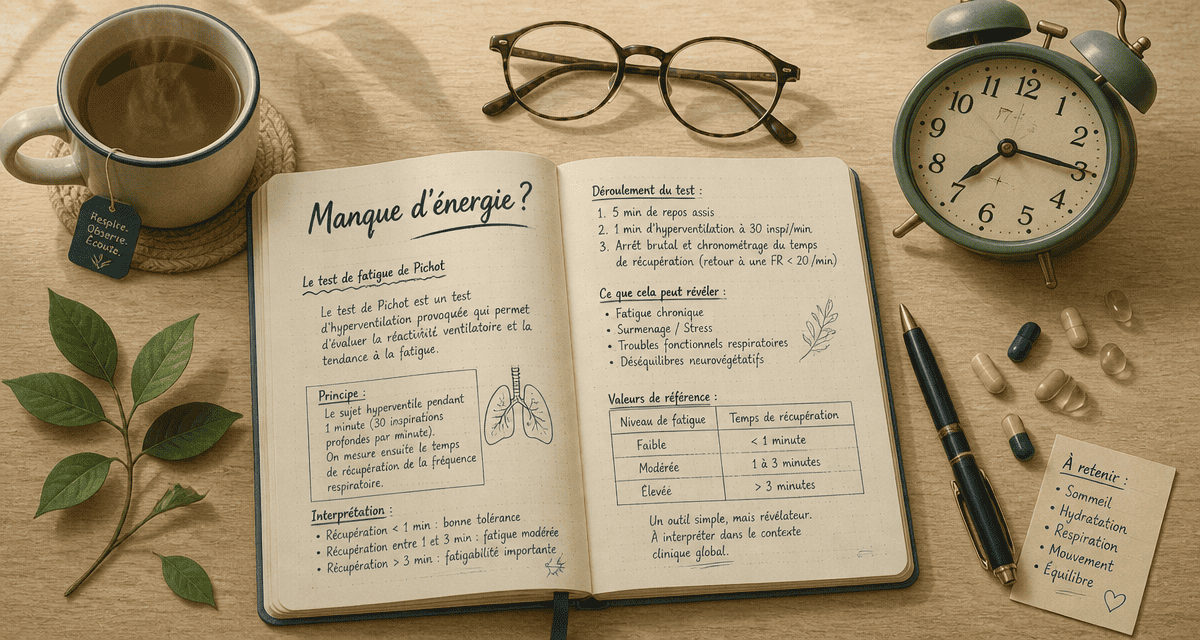 Respire.
Observe.
Écoute.
Manque d'énergie ?
Le test de fatigue de Pichot
Le test de Pichot est un test
d'hyperventilation provoquée qui permet
d'évaluer la réactivité ventilatoire et la
tendance à la fatigue.
Principe :
Le sujet hyperventile pendant
1 minute (30 inspirations
profondes par minute).
On mesure ensuite le temps
de récupération de la fréquence
respiratoire.
Interprétation :
• Récupération < 1 min : bonne tolérance
• Récupération entre 1 et 3 min : fatigue modérée
• Récupération > 3 min : fatigabilité importante
Déroulement du test :
1. 5 min de repos assis
2. 1 min d'hyperventilation à 30 inspi/min
3. Arrêt brutal et chronométrage du temps
de récupération (retour à une FR < 20 /min)
Ce que cela peut révéler :
• Fatigue chronique
• Surmenage / Stress
• Troubles fonctionnels respiratoires
• Déséquilibres neurovégétatifs
Valeurs de référence :
Niveau de fatigue Temps de récupération
Faible < 1 minute
Modérée 1 à 3 minutes
Élevée > 3 minutes
Un outil simple, mais révélateur.
À interpréter dans le contexte
clinique global.
12
1
2
3
4
5
6
7
8
9
10
11
À retenir :
• Sommeil
• Hydratation
• Respiration
• Mouvement
• Équilibre